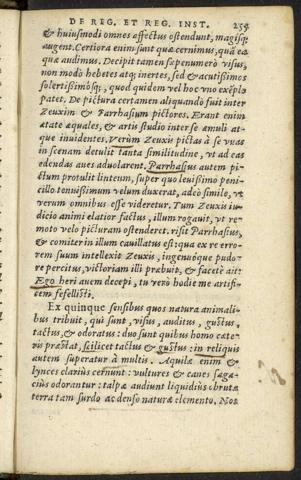 DE REG. ET REG. INST. 259
& huiusmodi omnes affectus ostendunt, magisq;
augent. Certiora enim sunt quæ cernimus, quã ea
quæ audimus. Decipit tamen sæpenumerò visus,
non modò hebetes atq; inertes, sed & acutissimos
solertissimósq;, quod quidem vel hoc vno exẽplo
patet. De pictura certamen aliquando fuit inter
Zeuxim & Parrhasium pictores. Erant enim
ætate æquales, & artis studio inter se æmuli at-
que inuidentes. Verùm Zeuxis pictas à se vuas
in scenam detulit tanta similitudine, vt ad eas
edendas aues aduolarent. Parrhasius autem pi-
ctum protulit linteum, super quo leuissimo peni-
cillo tenuissimum velum duxerat, adeò simile, vt
verum omnibus esse videretur. Tum Zeuxis iu-
dicio animi elatior factus, illum rogauit, vt re-
moto velo picturam ostenderet. risit Parrhasius,
& comiter in illum cauillatus est: qua ex re erro-
rem suum intellexit Zeuxis, ingenuóque pudo-
re percitus, victoriam illi præbuit, & facetè ait:
Ego heri auem decepi, tu verò hodie me artifi-
cem fefellisti.
Ex quinque sensibus quos natura animali-
bus tribuit, qui sunt, visus, auditus, gustus,
tactus, & odoratus: duo sunt quibus homo cæte-
ris præstat, scilicet tactus & gustus: in reliquis
autem superatur à multis. Aquilæ enim &
lynces clariùs cernunt: vultures & canes saga-
ciùs odorantur: talpæ audiunt liquidiùs obrutæ
terra tam surdo ac denso naturæ elemento. Nos